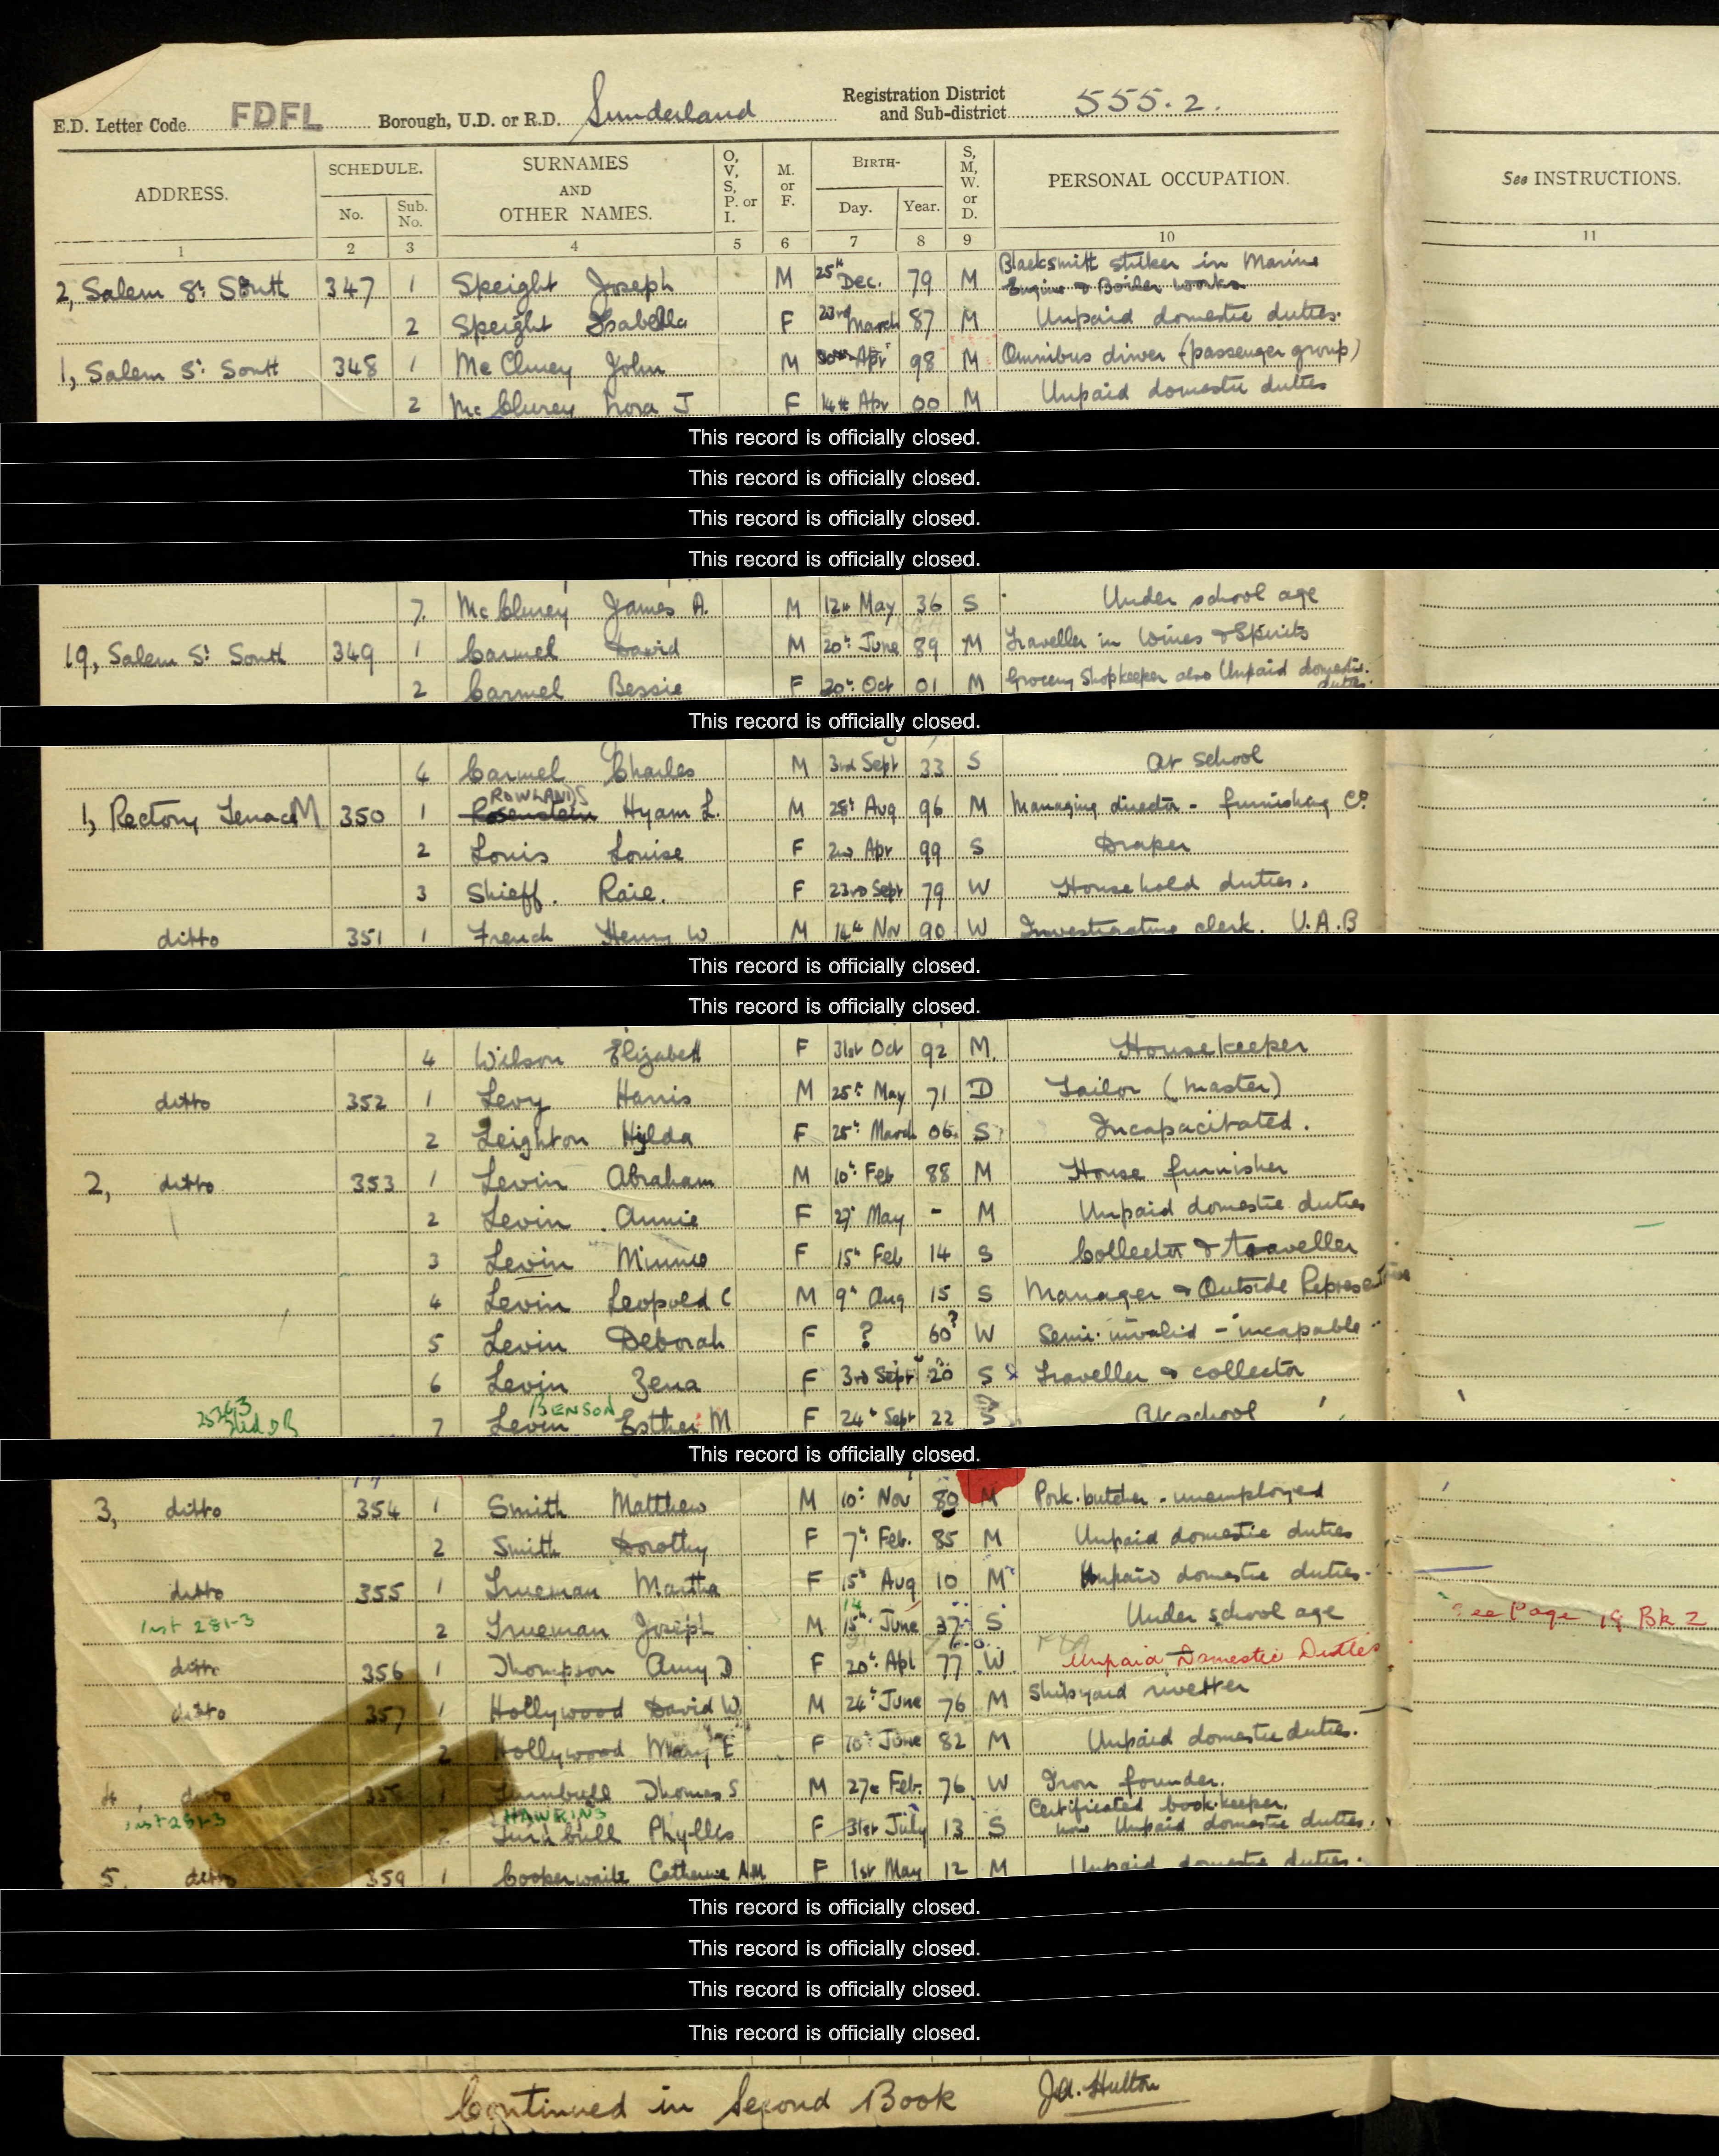 E.D. Letter Code FDFL Borough, U.D. or R.D. Sunderland Registration District and Sub-district 555.2.
ADDRESS. SCHEDULE. No. Sub. No. SURNAMES AND OTHER NAMES. O, V, S, P. or I. M. or F. BIRTH- Day. Year. S, M, W. or D. PERSONAL OCCUPATION. See INSTRUCTIONS.
1 2 3 4 5 6 7 8 9 10 11
2, Salem St South 347 1 Speight Joseph M 25th Dec. 79 M Blacksmith striker in Marine Engine & Boiler works
2 Speight Isabella F 23rd March 87 M Unpaid domestic duties.
1, Salem St South 348 1 McClurey John M 30th Apr 98 M Omnibus driver (passenger group)
2 McClurey Nora J F 14th Apr 00 M Unpaid domestic duties
This record is officially closed.
This record is officially closed.
This record is officially closed.
This record is officially closed.
7. McClurey James A. M 12th May 36 S Under school age
19, Salem St South 349 1 Carmel David M 20th June 89 M Traveller in Wines & Spirits
2 Carmel Bessie F 20th Oct 01 M Grocery Shopkeeper also Unpaid domestic duties.
This record is officially closed.
4 Carmel Charles M 3rd Sept 33 S At school
1, Rectory Terrace M 350 1 Rosenstein ROWLANDS Hyam L. M 28th Aug 96 M Managing director - furnishing Co.
2 Louis Louise F 2nd Apr 99 S Draper
3 Shieff. Raie. F 23rd Sept 79 W Household duties.
ditto 351 1 French Henry W M 14th Nov 90 W Investigating clerk. U.A.B
This record is officially closed.
This record is officially closed.
4 Wilson Elizabeth F 31st Oct 92 M. Housekeeper
ditto 352 1 Levy Harris M 25th May 71 D Tailor (Master)
2 Leighton Hylda F 25th March 06. S Incapacitated.
2, ditto 353 1 Levin Abraham M 10th Feb 88 M House furnisher
2 Levin Annie F 27th May - M Unpaid domestic duties
3 Levin Minnie F 15th Feb 14 S Collector & traveller
4 Levin Leopold C M 9th Aug 15 S Manager & Outside Representative
5 Levin Deborah F ? 60? W Semi-invalid - incapable
6 Levin Zena F 3rd Sept 20 S Traveller & collector
7 Levin BENSON Esther M F 24th Sept 22 S At school
This record is officially closed.
3, ditto 354 1 Smith Matthew M 10th Nov 80 M Pork-butcher - unemployed
2 Smith Dorothy F 7th Feb. 85 M Unpaid domestic duties
ditto 355 1 Trueman Martha F 15th Aug 10 M Unpaid domestic duties.
2 Trueman Joseph M 15th June 37 S Under school age See Page 18 Bk 2
ditto 356 1 Thompson Amy D F 20th Apl 77 W Unpaid Domestic Duties
ditto 357 1 Hollywood David W. M 24th June 76 M Shipyard rivetter
2 Hollywood Mary E F 10th June 82 M Unpaid domestic duties.
4, ditto 358 1 Turnbull Thomas S M 27th Feb. 76 W Iron founder.
Turnbull HAWKINS Phyllis F 31st July 13 S Certificated book-keeper. now Unpaid domestic duties.
5, ditto 359 1 Cooperwaite Catherine A.M F 1st May 12 M Unpaid domestic duties.
This record is officially closed.
This record is officially closed.
This record is officially closed.
This record is officially closed.
Continued in Second Book J.A. Hulton